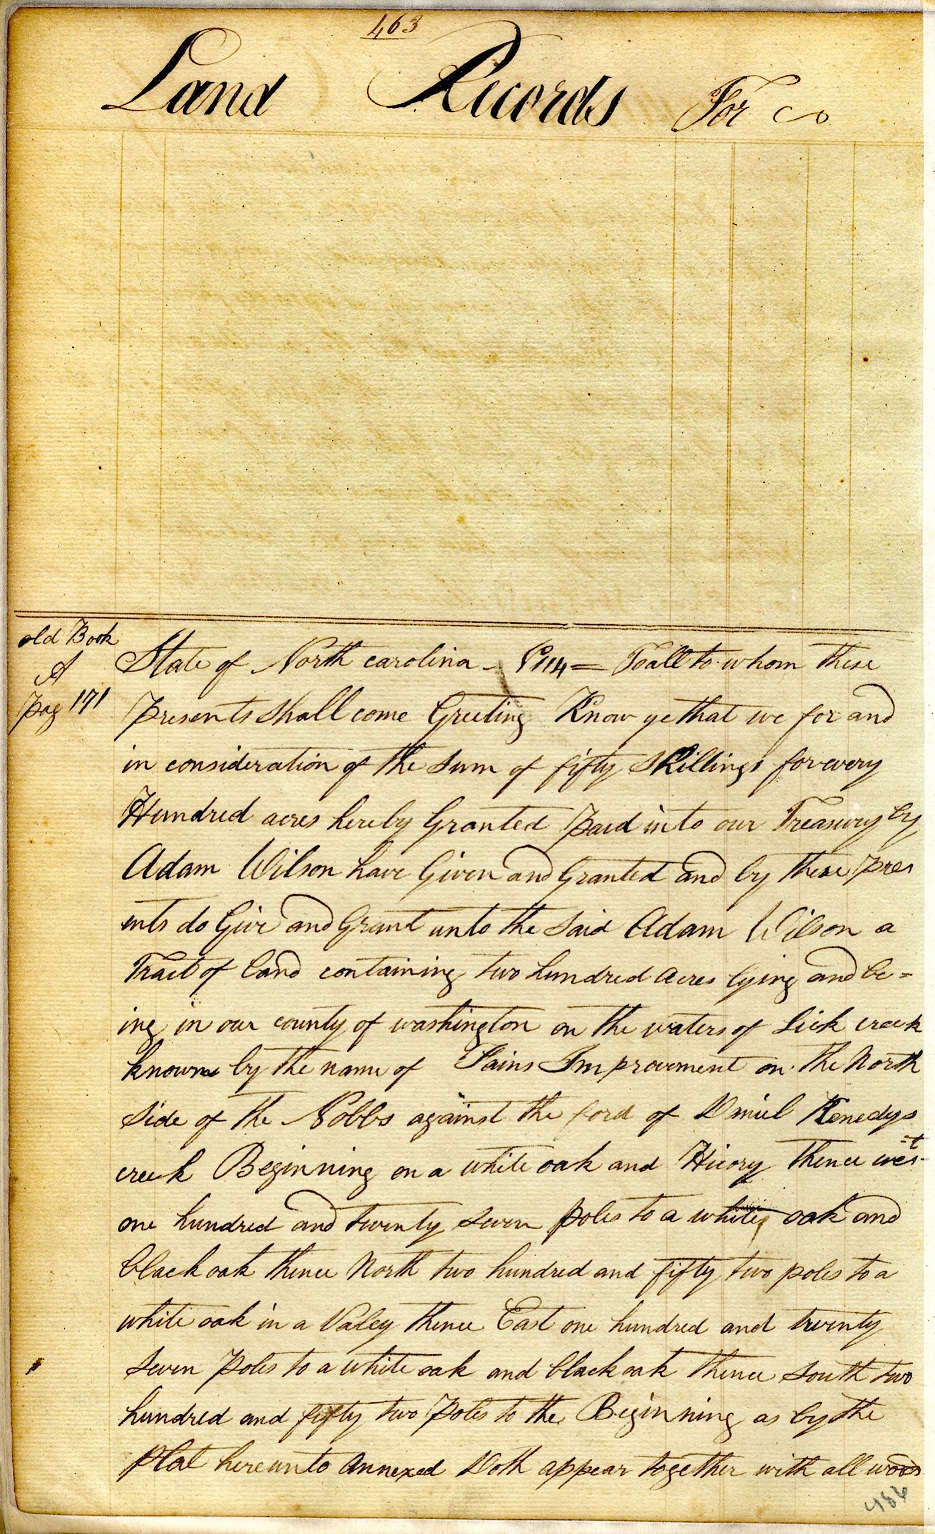 463
Land Records For
old Book
A
Pag 171
State of North carolina No 114 = To all to whom these
Presents shall come Greeting Know ye that we for and
in consideration of the Sum of fifty Shillings for every
Hundred acres hereby Granted Paid into our Treasury by
Adam Wilson have Given and Granted and by these Pres
ents do Give and Grant unto the Said Adam Wilson a
Tract of Land containing two hundred Acres lying and be=
ing in our county of washington on the waters of Lick creek
known by the name of Sains Improvement on the North
Side of the Nobbs against the ford of Daniel Kenedys
creek Beginning on a white oak and Hicory thence west
one hundred and twenty seven poles to a white oak and
black oak thence North two hundred and fifty two poles to a
white oak in a Valey thence East one hundred and twenty
Seven Poles to a white oak and black oak thence South two
hundred and fifty two Poles to the Beginning as by the
Plat hereunto Annexed Doth appear together with all woods
486